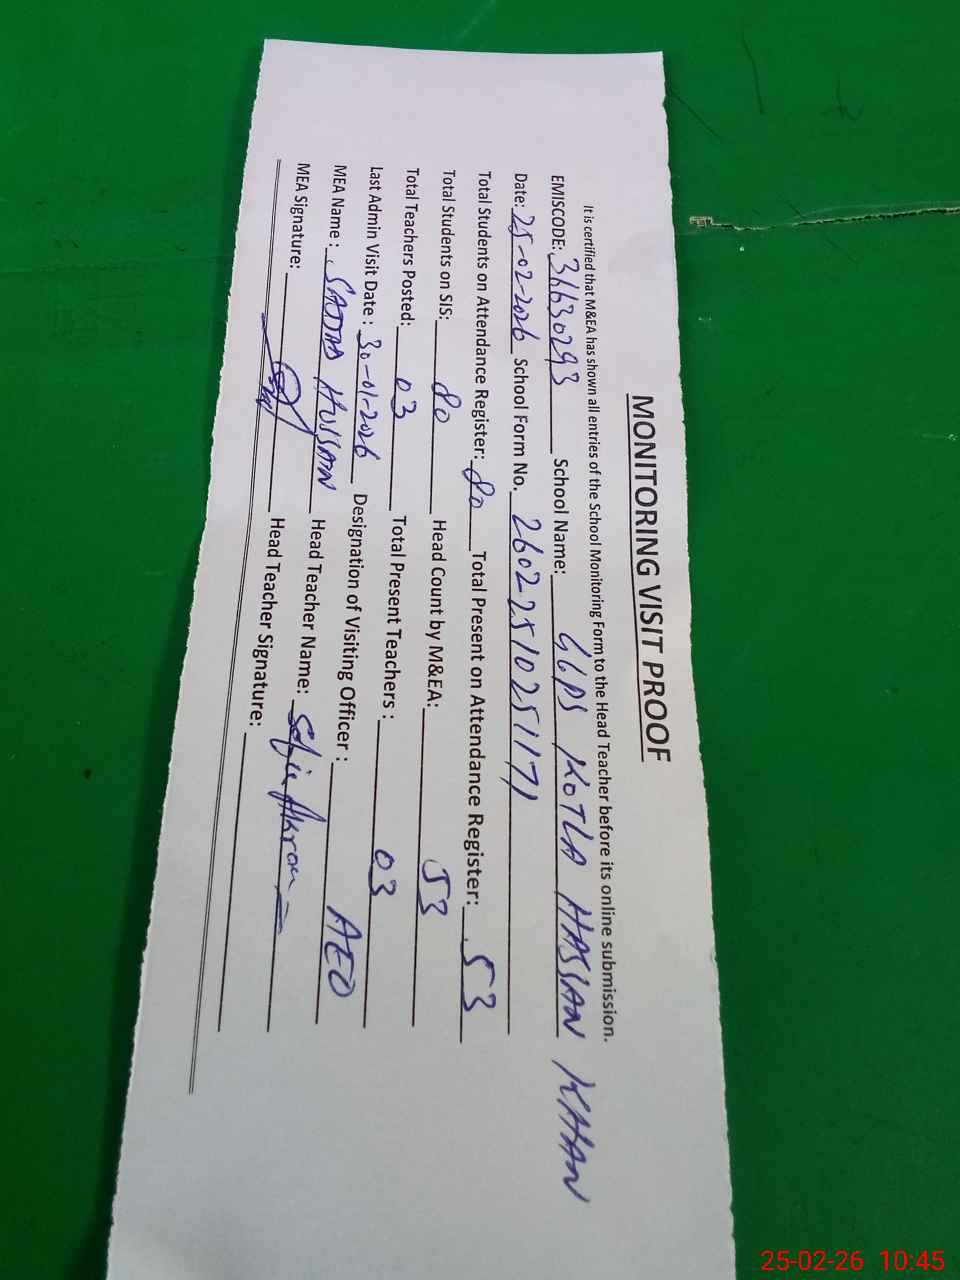 MONITORING VISIT PROOF
It is certified that M&EA has shown all entries of the School Monitoring Form to the Head Teacher before its online submission.
EMISCODE: 36630293 School Name: GGPS KOTLA HASSAN KHAN
Date: 25-02-2026 School Form No. 26022510251171
Total Students on Attendance Register: 80 Total Present on Attendance Register: 53
Total Students on SIS: 80 Head Count by M&EA: 53
Total Teachers Posted: 03 Total Present Teachers : 03
Last Admin Visit Date : 30-01-2026 Designation of Visiting Officer : AEO
MEA Name : HUSSAIN Head Teacher Name: Akram
MEA Signature: Head Teacher Signature:
25-02-26 10:45